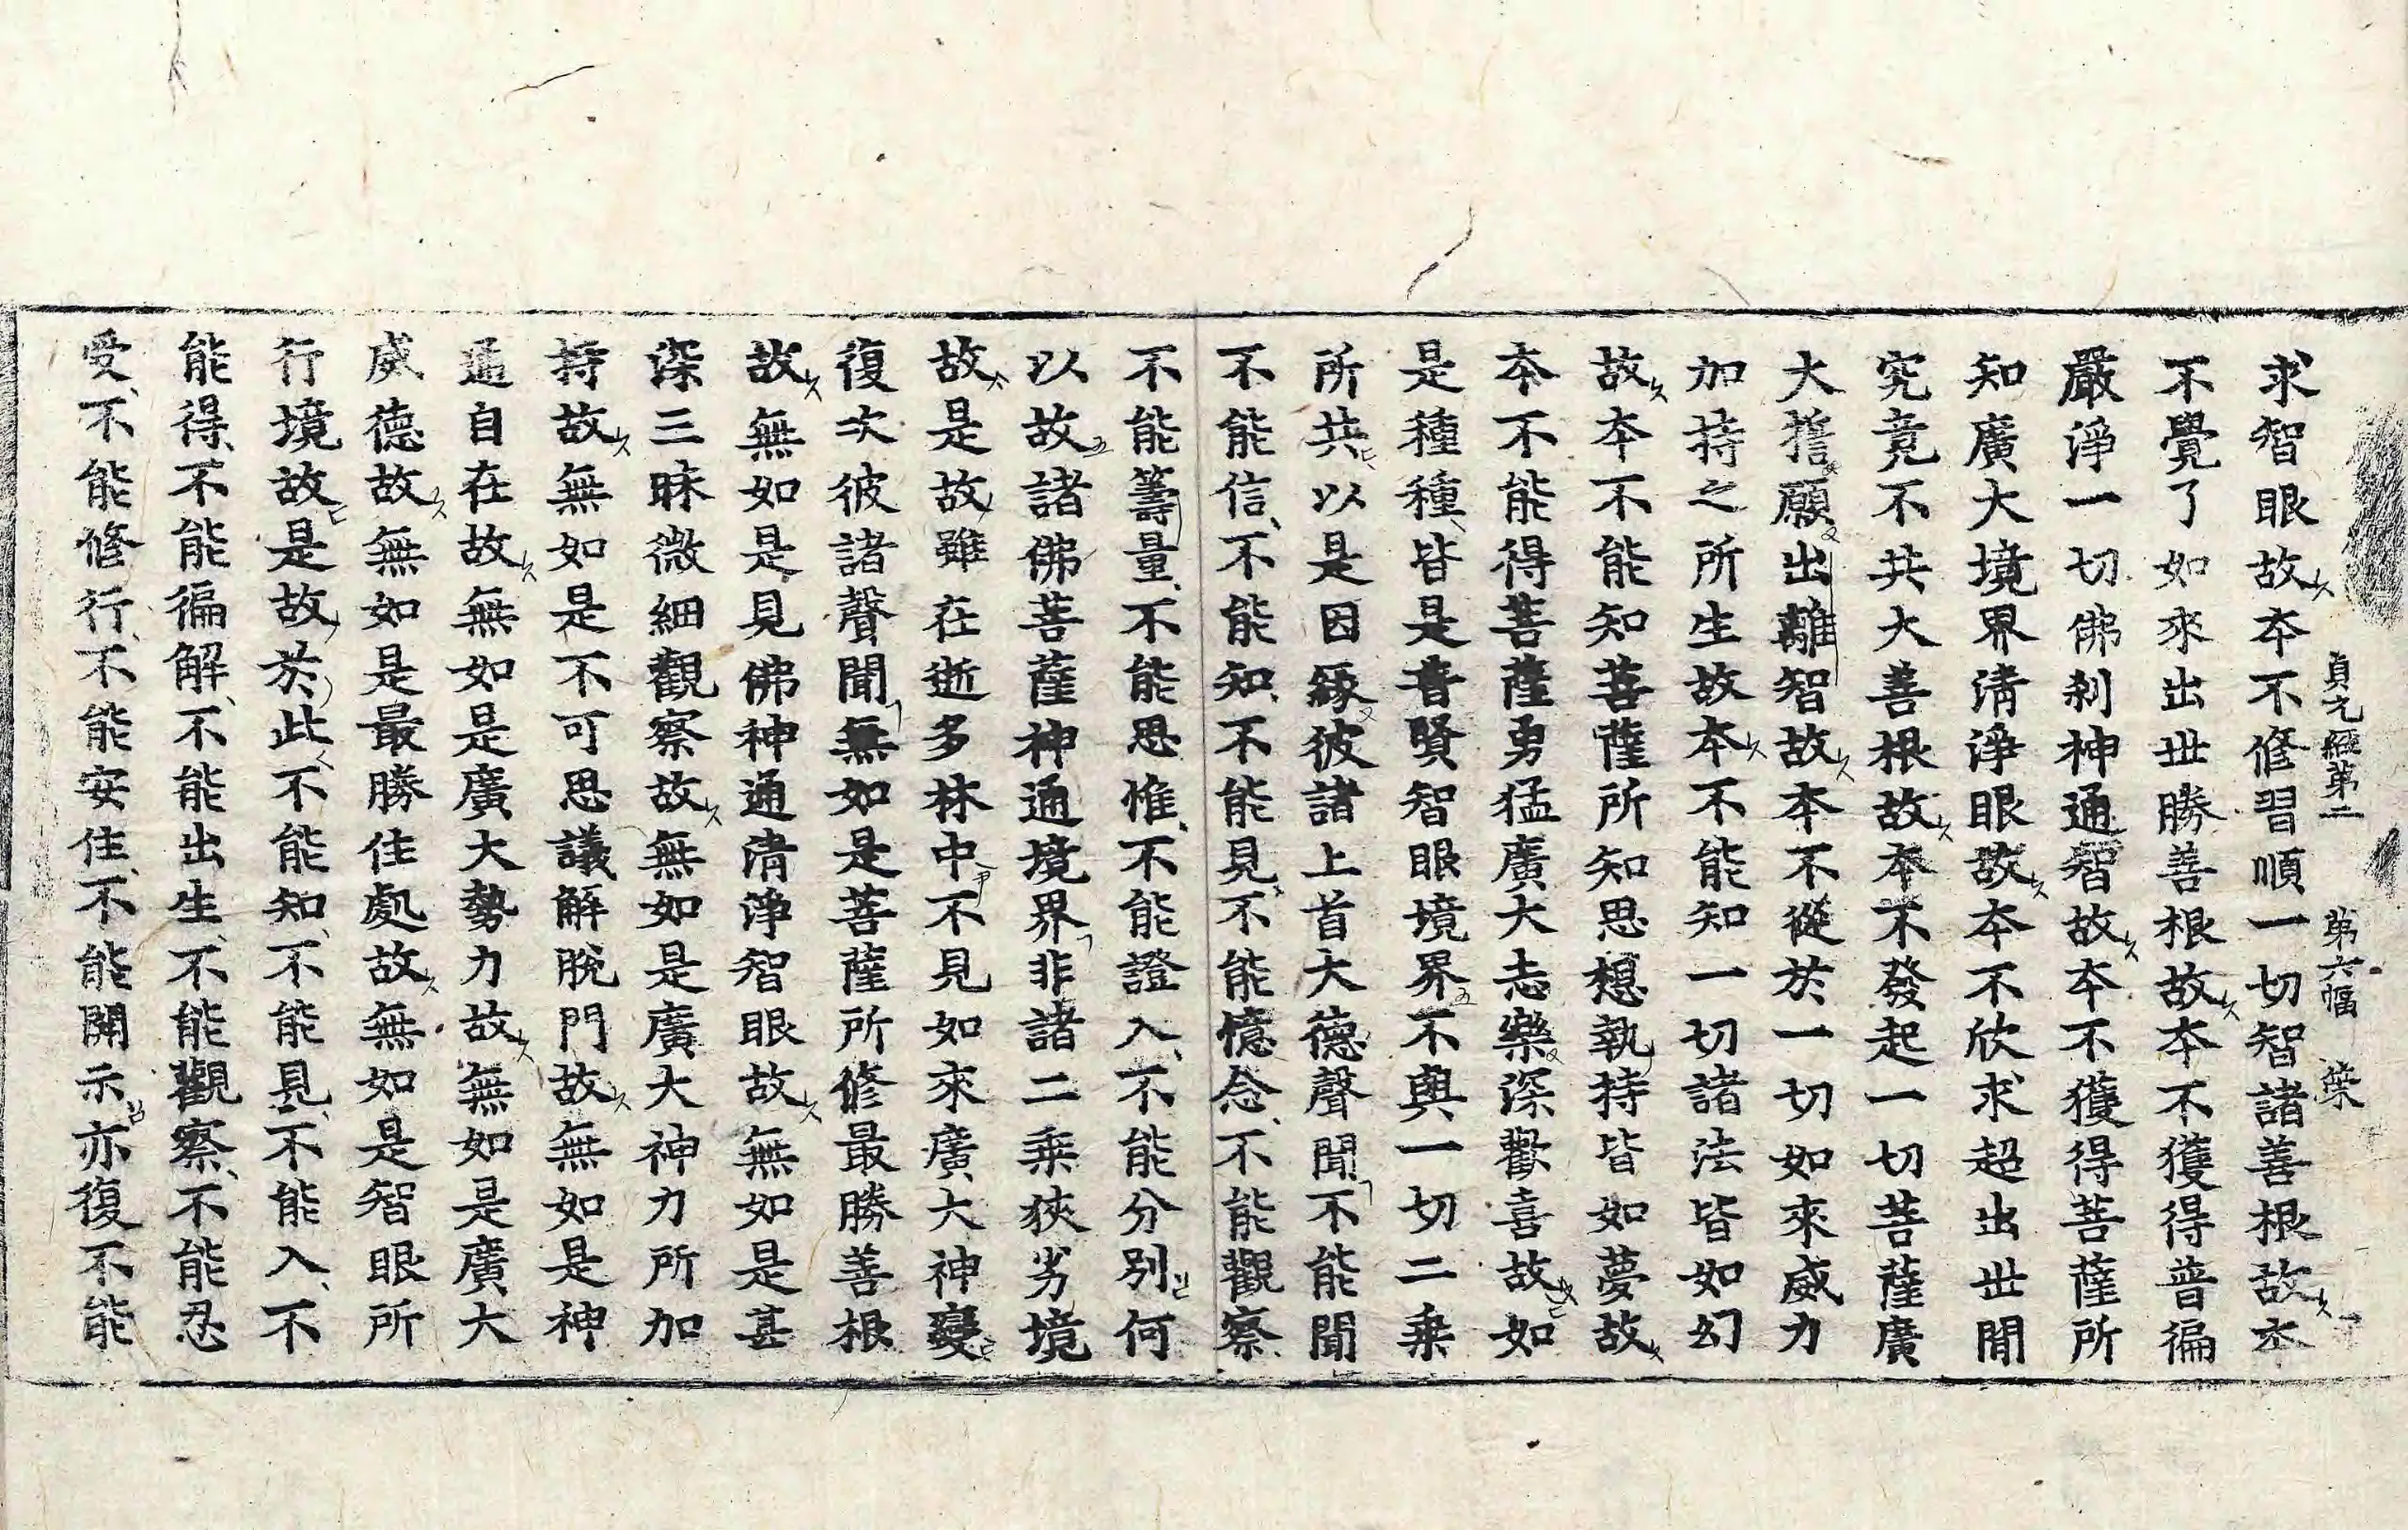 貞元經第二 第六幅 榮
求智眼故本不修習順一切智諸善根故本
不覺了如來出世勝善根故本不獲得普徧
嚴淨一切佛刹神通智故本不獲得菩薩所
知廣大境界清淨眼故本不欣求超出世間
究竟不共大善根故本不發起一切菩薩廣
大誓願出離智故本不從於一切如來威力
加持之所生故本不能知一切諸法皆如幻
故本不能知菩薩所知思想執持皆如夢故
本不能得菩薩勇猛廣大志樂深歡喜故如
是種種皆是普賢智眼境界不與一切二乘
所共以是因緣彼諸上首大德聲聞不能聞
不能信不能知不能見不能憶念不能觀察
不能籌量不能思惟不能證入不能分別何
以故諸佛菩薩神通境界非諸二乘狹劣境
故是故雖在逝多林中不見如來廣大神變
復次彼諸聲聞無如是菩薩所修最勝善根
故無如是見佛神通清淨智眼故無如是甚
深三昧微細觀察故無如是廣大神力所加
持故無如是不可思議解脫門故無如是神
通自在故無如是廣大勢力故無如是廣大
威德故無如是最勝住處故無如是智眼所
行境故是故於此不能知不能見不能入不
能得不能徧解不能出生不能觀察不能忍
受不能修行不能安住不能開示亦復不能